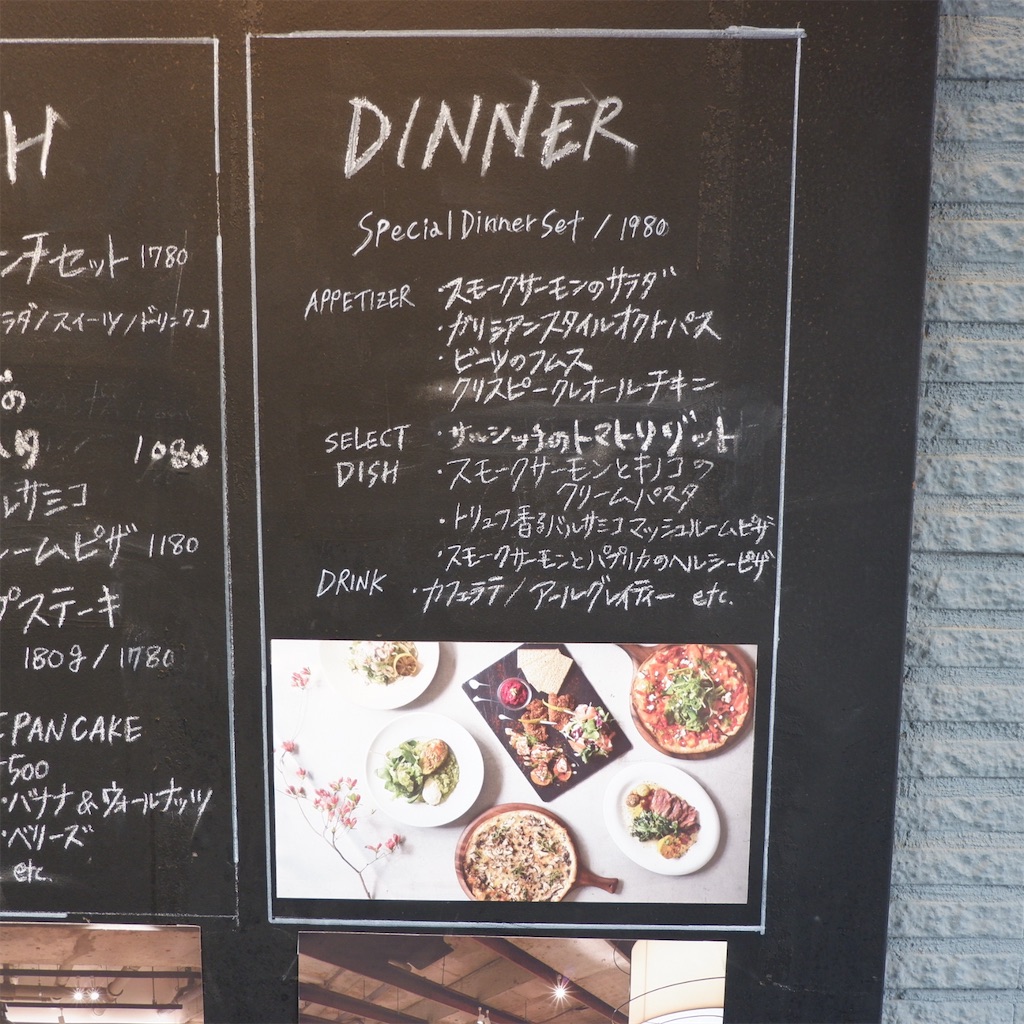 H
ンチセット 1780
ラダ/スイーツ/ドリンクコ
の
1080
ルサミコ
ームピザ 1180
プステーキ
180g/1780
PANCAKE
500
・バナナ&ウォールナッツ
・ベリーズ
etc.
DINNER
Special Dinner Set / 1980
APPETIZER スモークサーモンのサラダ
・ガリシアンスタイルオクトパス
・ビーツのフムス
・クリスピークレオールチキン
SELECT DISH ・サルシッチャのトマトリゾット
・スモークサーモンとキノコの
クリームパスタ
・トリュフ香るバルサミコマッシュルームピザ
・スモークサーモンとパプリカのヘルシーピザ
DRINK ・カフェラテ/アールグレイティー etc.